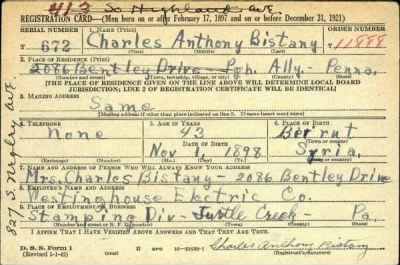 413 So Highland Ave
REGISTRATION CARD—(Men born on or after February 17, 1897 and on or before December 31, 1921)
SERIAL NUMBER 1. NAME (Print) ORDER NUMBER
T 672 Charles Anthony Bistany T 11888
(First) (Middle) (Last)
2. PLACE OF RESIDENCE (Print)
2086 Bentley Drive Pgh. Ally. Penna.
(Number and street) (Town, township, village, or city) (County) (State)
[THE PLACE OF RESIDENCE GIVEN ON THE LINE ABOVE WILL DETERMINE LOCAL BOARD
JURISDICTION; LINE 2 OF REGISTRATION CERTIFICATE WILL BE IDENTICAL]
3. MAILING ADDRESS
Same
[Mailing address if other than place indicated on line 2. If same insert word same]
4. TELEPHONE 5. AGE IN YEARS 6. PLACE OF BIRTH
None 43 Beirut
DATE OF BIRTH (Town or county)
Nov 1, 1898 Syria
(Mo.) (Day) (Yr.) (State or country)
7. NAME AND ADDRESS OF PERSON WHO WILL ALWAYS KNOW YOUR ADDRESS
Mrs. Charles Bistany - 2086 Bentley Drive
8. EMPLOYER'S NAME AND ADDRESS
Westinghouse Electric Co.
9. PLACE OF EMPLOYMENT OR BUSINESS
Stamping Div - Turtle Creek - Pa
(Number and street or R. F. D. number) (Town) (County) (State)
I AFFIRM THAT I HAVE VERIFIED ABOVE ANSWERS AND THAT THEY ARE TRUE.
D. S. S. Form 1
(Revised 1-1-42) GPO 16-21630-1 Charles Anthony Bistany
(Registrant's signature)